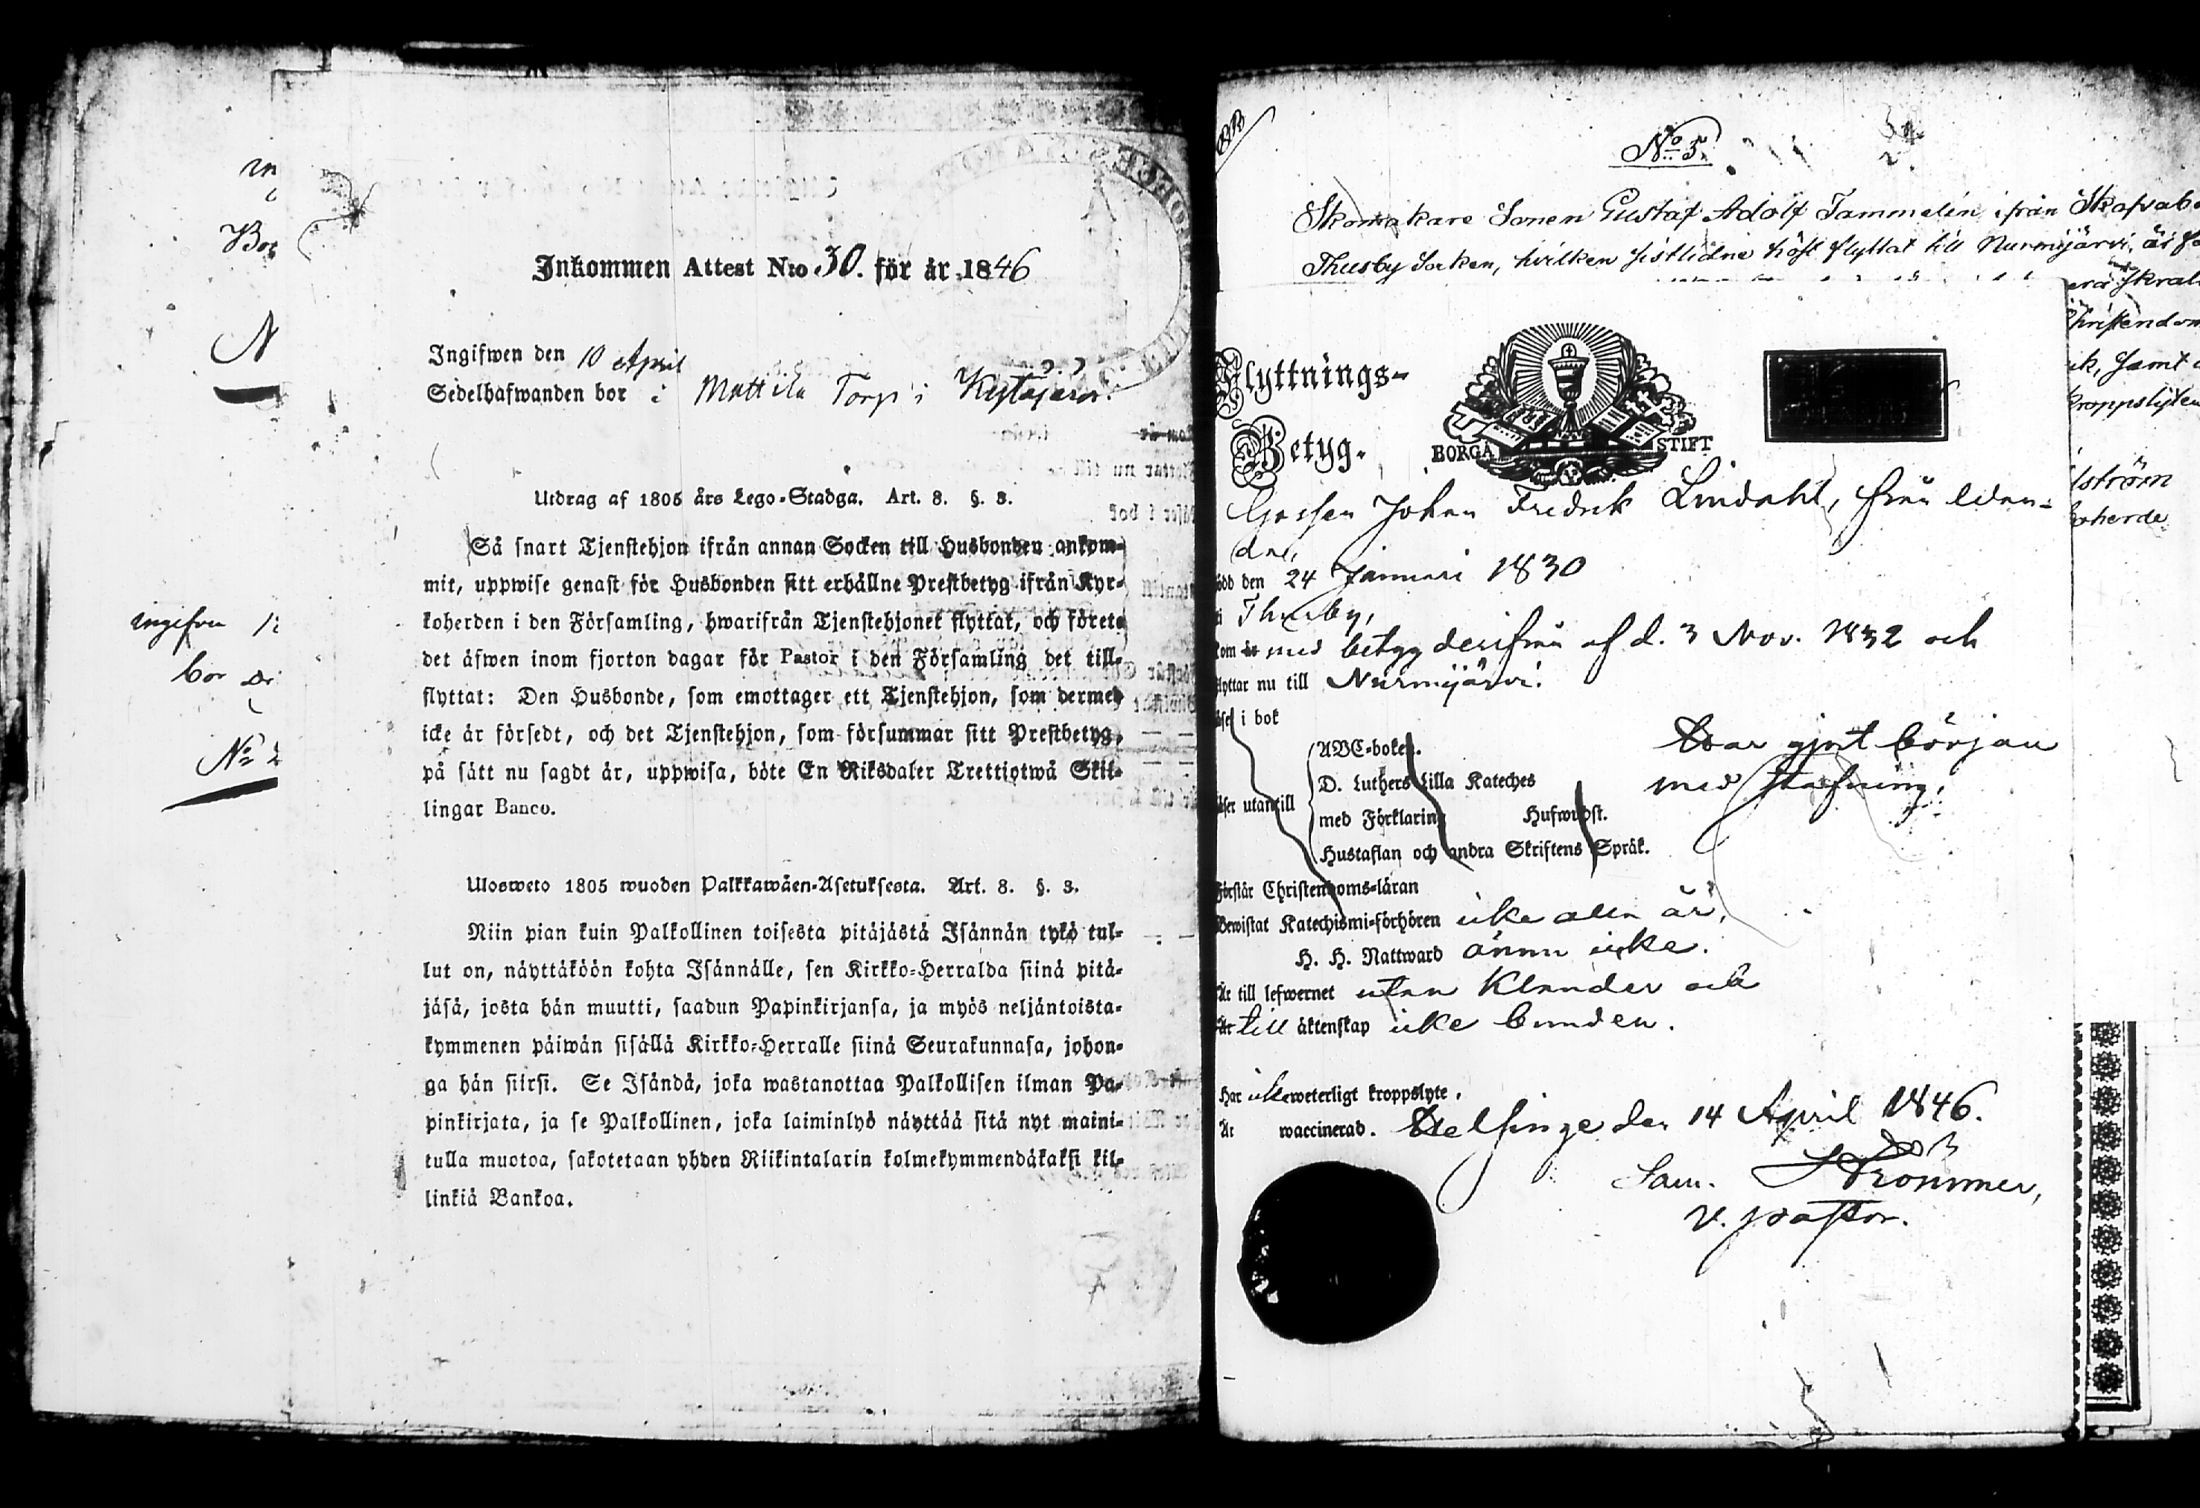 Inkommen Attest N:o 30. för år 1846
Ingifwen den 10 April
Sedelhafwanden bor i Mattila Torp i Kytäjärvi.
Utdrag af 1805 års Lego-Stadga. Art. 8. §. 3.
Så snart Tjenstehjon ifrån annan Socken till Husbonden ankom-
mit, uppwise genast för Husbonden sitt erhållne Prestbetyg ifrån Kyr-
koherden i den Församling, hwarifrån Tjenstehjonet flyttat, och förete
det äfwen inom fjorton dagar för Pastor i den Församling det till-
flyttat: Den Husbonde, som emottager ett Tjenstehjon, som dermed
icke är försedt, och det Tjenstehjon, som försummar sitt Prestbetyg,
på sätt nu sagdt är, uppwisa, böte En Riksdaler Trettiotwå Skil-
lingar Banco.
Ulosweto 1805 wuoden Palkkawäen-Asetuksesta. Art. 8. §. 3.
Niin pian kuin Palkollinen toisesta pitäjästä Isännän tykö tul-
lut on, näyttäköön kohta Isännälle, sen Kirkko-Herralda siinä pitä-
jäsä, josta hän muutti, saadun Papinkirjansa, ja myös neljäntoista-
kymmenen päiwän sisällä Kirkko-Herralle siinä Seurakunnasa, johon-
ga hän siirsi. Se Isändä, joka wastanottaa Palkollisen ilman Pa-
pinkirjata, ja se Palkollinen, joka laiminlyö näyttää sitä nyt maini-
tulla muotoa, sakotetaan yhden Riikintalarin kolmekymmendäkaksi kil-
linkiä Bankoa.
ingifven
bor
No
No 5.
Skomakare Sonen Gustaf Adolf Tammelin, ifrån
Thusby Socken, hvilken sistlidne höst flyttat till Nurmijärvi, är
Christendom
samt
kroppslyten
Flyttnings-
Betyg.
BORGÅ STIFT
Gossen Johan Fredrik Lindahl, från
född den 24 Januari 1830
i Thusby,
som med betyg derifrån af d. 3 Nov. 1832 och
flyttar nu till Nurmijärvi.
läser i bok
ABC-boken. Har gjort början
D. Luthers Lilla Kateches med stafning.
läser utantill
med Förklaring Hufwudst.
Hustaflan och andra Skriftens Språk.
Förstår Christendoms-läran
Bewistat Katechismi-förhören icke alla år,
H. H. Nattward ännu icke.
Är till lefwernet utan klander och
till äktenskap icke bunden.
Har icke weterligt kroppslyte.
Är waccinerad. Helsinge den 14 April 1846.
Sam. Strömmer,
v. pastor.